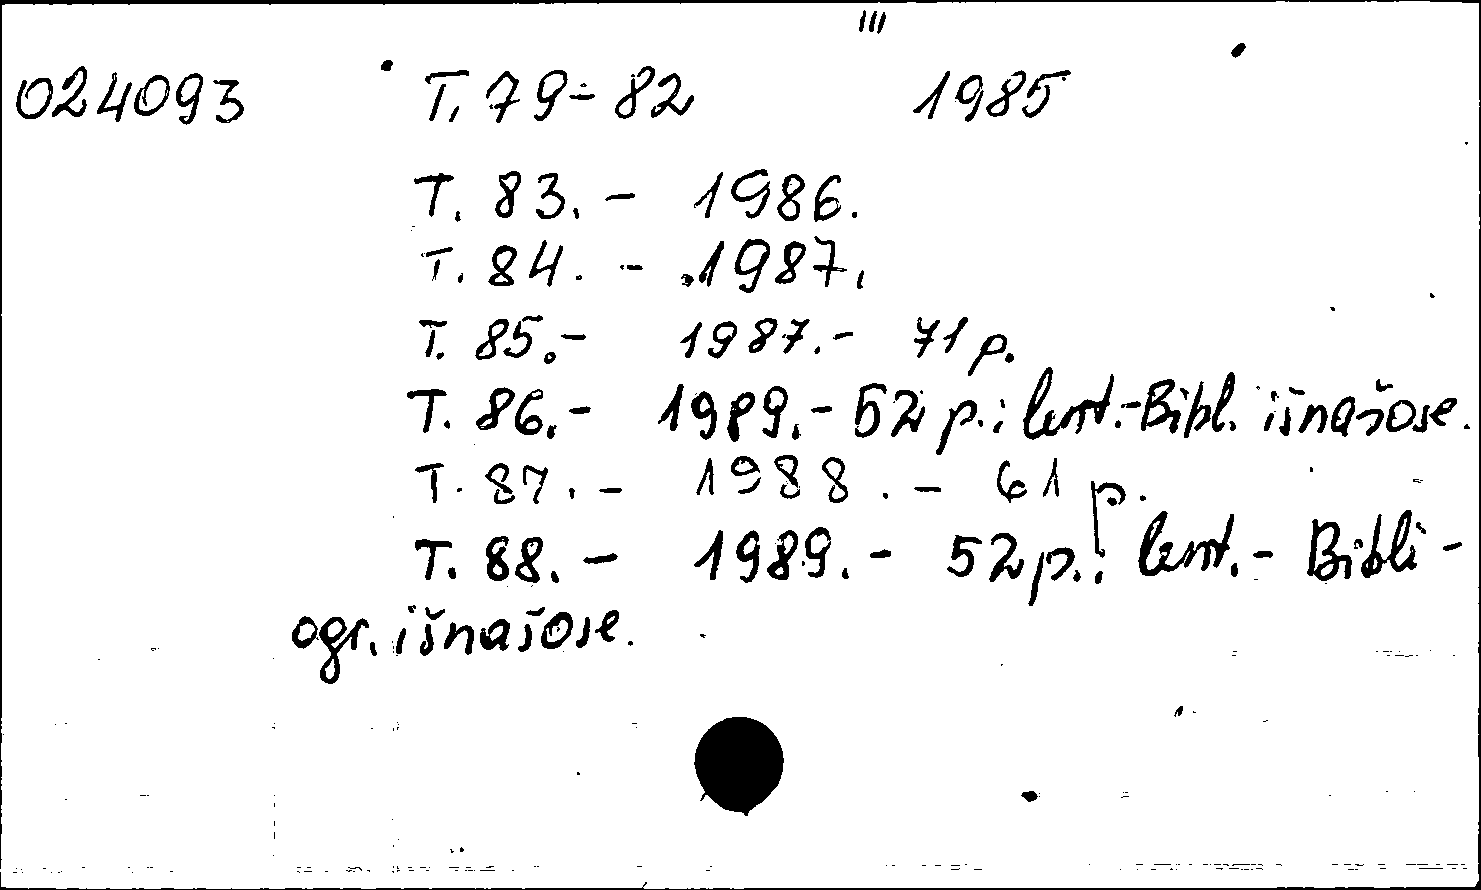 III
024093 T. 79-82 1985
T. 83. - 1986.
T. 84. - 1987.
T. 85. - 1987. - 71 p.
T. 86. - 1989. - 52 p.: lent. - Bibl. išnašose.
T. 87. - 1988. - 61 p.
T. 88. - 1989. - 52 p.: lent. - Bibli-
ogr. išnašose.